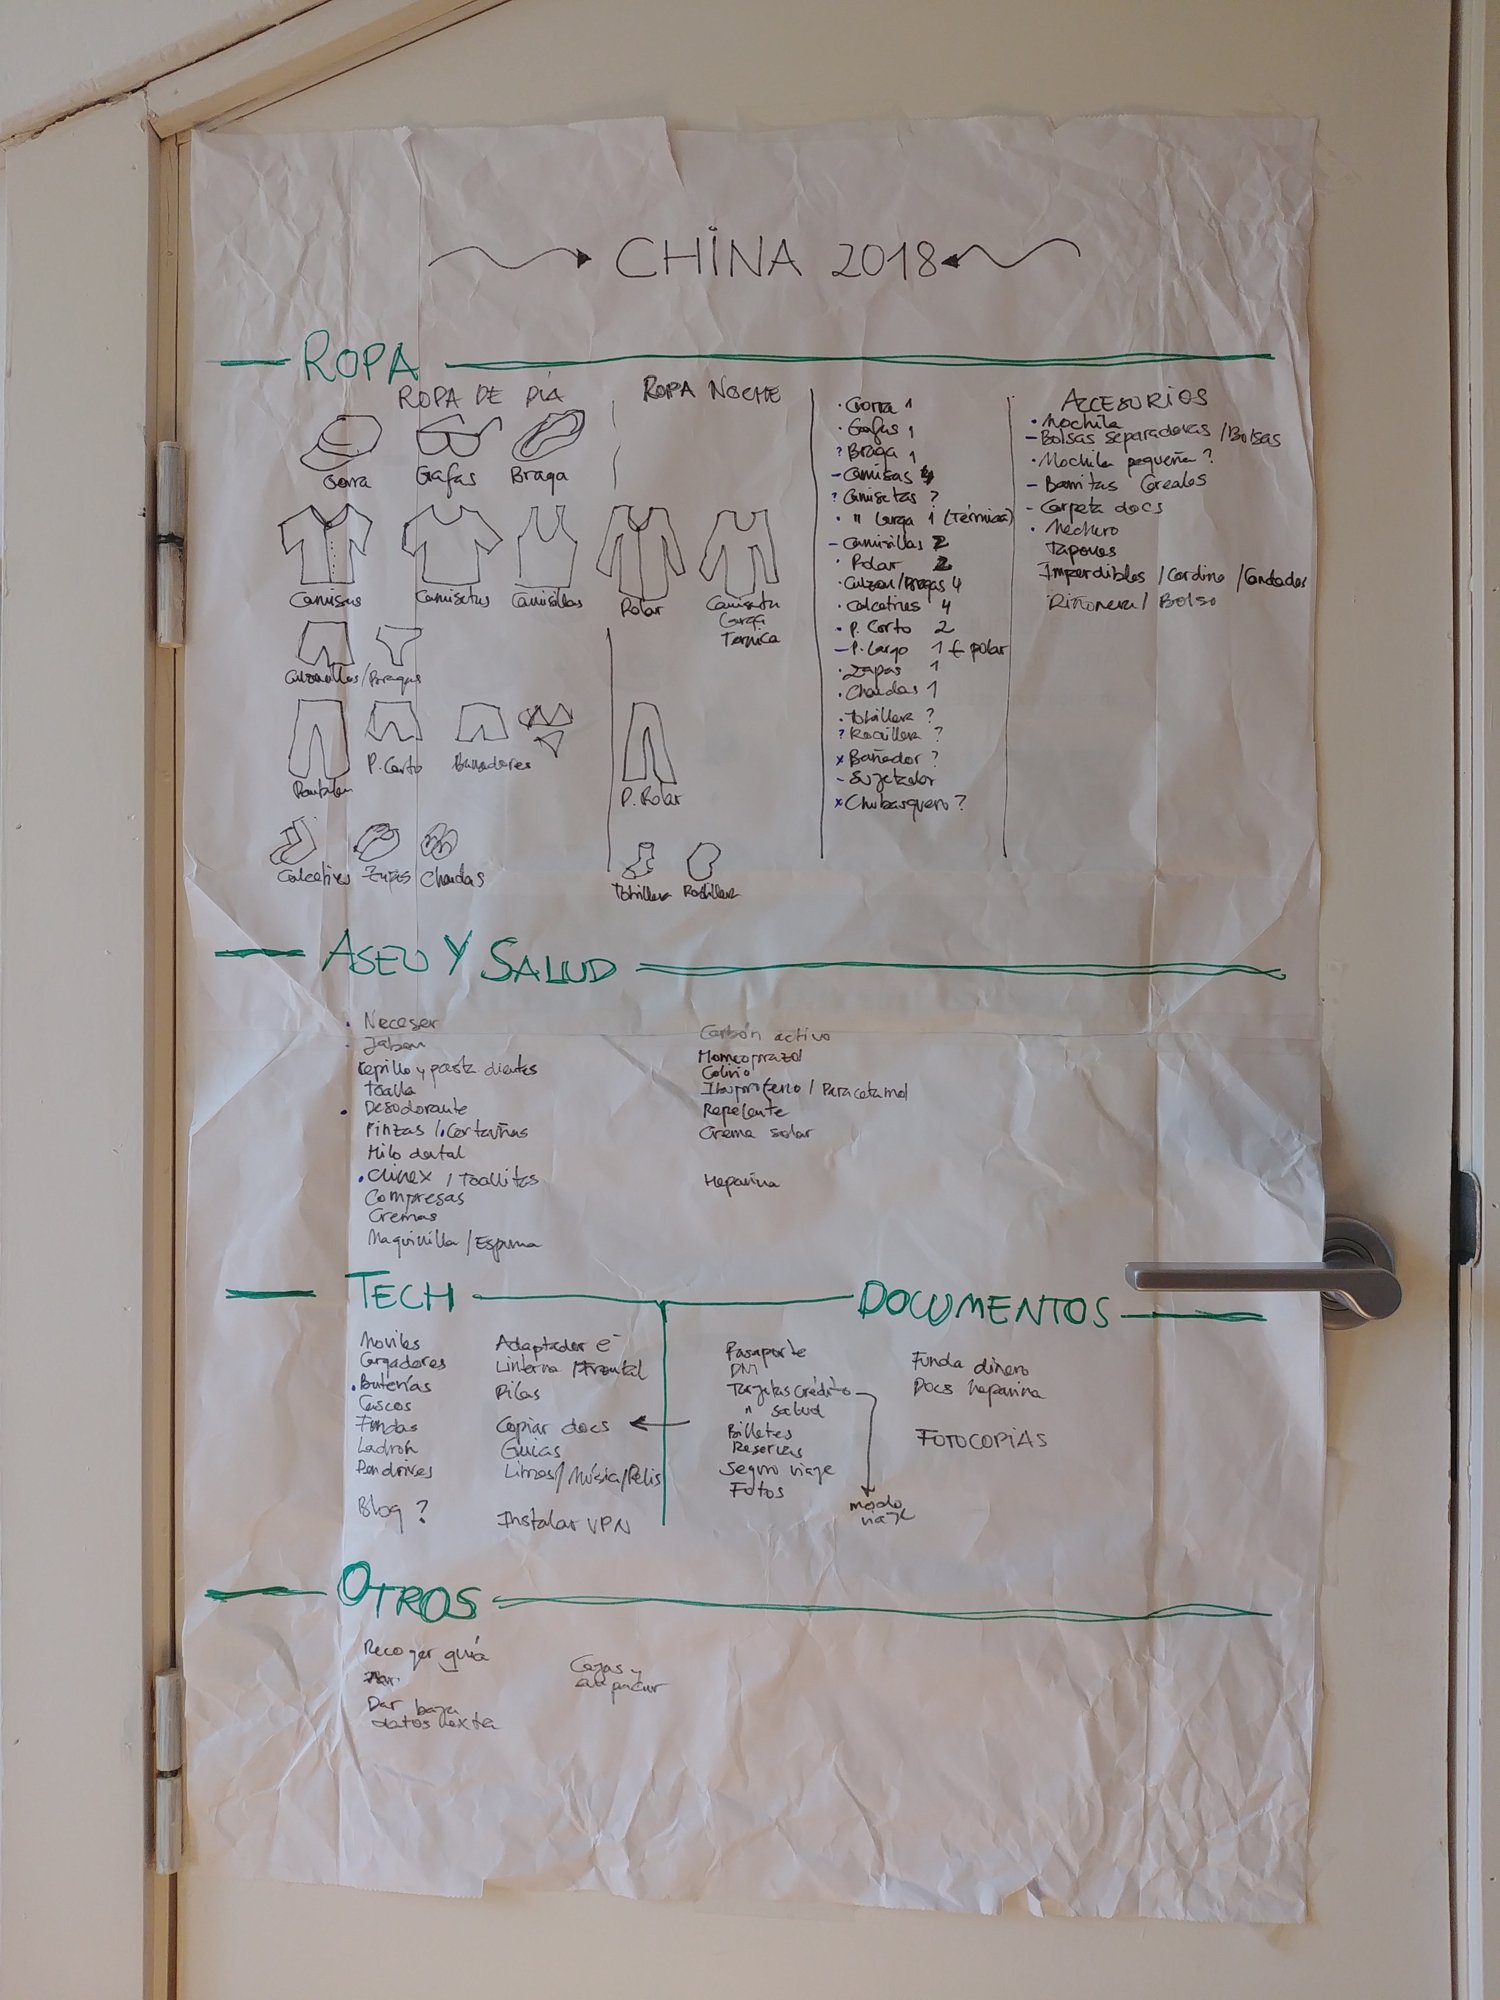 CHINA 2018
ROPA
ROPA DE DÍA
Gorra
Gafas
Braga
Camisas
Camisetas
Camisillas
Calzoncillos/Bragas
Pantalon
P. Corto
Bañadores
Calcetines
Zapas
Chanclas
ROPA NOCHE
Polar
Camiseta
Larga
Termica
P. Polar
Tobillera
Rodillera
· Gorra 1
· Gafas 1
? Braga 1
- Camisas 4
? Camisetas ?
· " Larga 1 (Térmica)
- Camisillas 2
· Polar 2
· Calzon/Bragas 4
· Calcetines 4
· P. Corto 2
- P. Largo 1 + polar
· Zapas 1
· Chanclas 1
· Tobillera ?
? Rodillera ?
x Bañador ?
- Sujetador
x Chubasquero ?
ACCESORIOS
· Mochila
- Bolsas separadoras / Bolsas
· Mochila pequeña ?
- Barritas Cereales
- Carpeta docs
· Mechero
Tapones
Imperdibles / Cordino / Candados
Riñonera / Bolso
ASEO Y SALUD
· Neceser
- Jabon
Cepillo y pasta dientes
Toalla
· Desodorante
Pinzas / · Cortauñas
Hilo dental
· Clinex / Toallitas
Compresas
Cremas
Maquinilla / Espuma
Carbón activo
Homeoprazol
Colirio
Ibuprofeno / Paracetamol
Repelente
Crema solar
Heparina
TECH
Moviles
Cargadores
· Baterías
Cascos
Fundas
Ladrón
Pendrives
Blog ?
Adaptador e-
Linterna / Frontal
Pilas
Copiar docs
Guias
Libros / Música / Pelis
Instalar VPN
DOCUMENTOS
Pasaporte
DNI
Tarjetas crédito
" salud
Billetes
Reservas
Seguro viaje
Fotos
modo
viaje
Funda dinero
Docs heparina
FOTOCOPIAS
OTROS
Recoger guía
Dar baja
datos
Cajas y